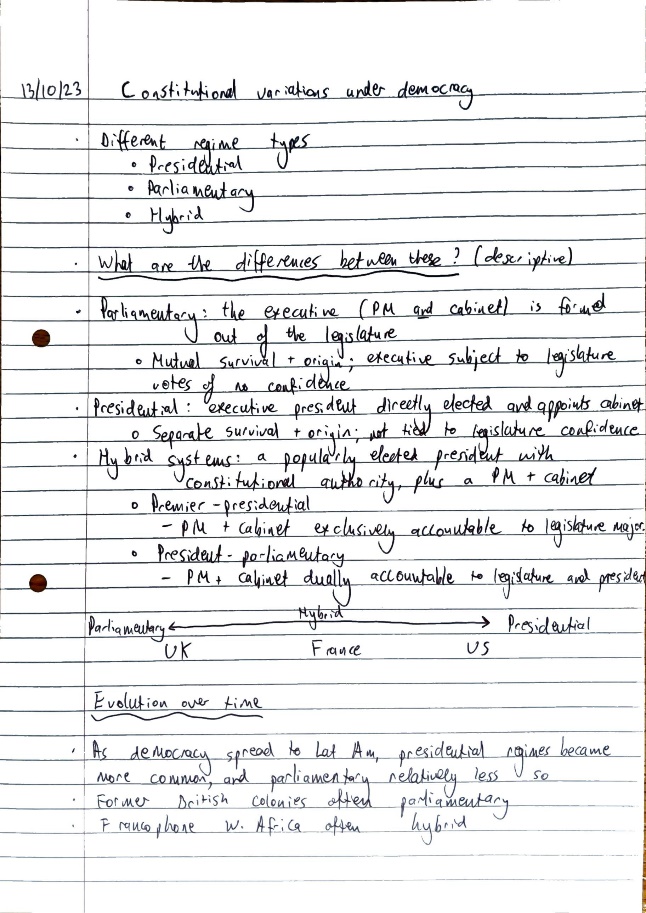 13/10/23 Constitutional variations under democracy
· Different regime types
∘ Presidential
∘ Parliamentary
∘ Hybrid
· What are the differences between these? (descriptive)
· Parliamentary: the executive (PM and cabinet) is formed
out of the legislature
∘ Mutual survival + origin; executive subject to legislature
votes of no confidence
· Presidential: executive president directly elected and appoints cabinet
∘ Separate survival + origin; not tied to legislature confidence
· Hybrid systems: a popularly elected president with
constitutional authority, plus a PM + cabinet
∘ Premier-presidential
– PM + cabinet exclusively accountable to legislature major.
∘ President-parliamentary
– PM + cabinet dually accountable to legislature and president
Parliamentary ← Hybrid → Presidential
UK France US
Evolution over time
· As democracy spread to Lat Am, presidential regimes became
more common, and parliamentary relatively less so
· Former British colonies often parliamentary
· Francophone W. Africa often hybrid